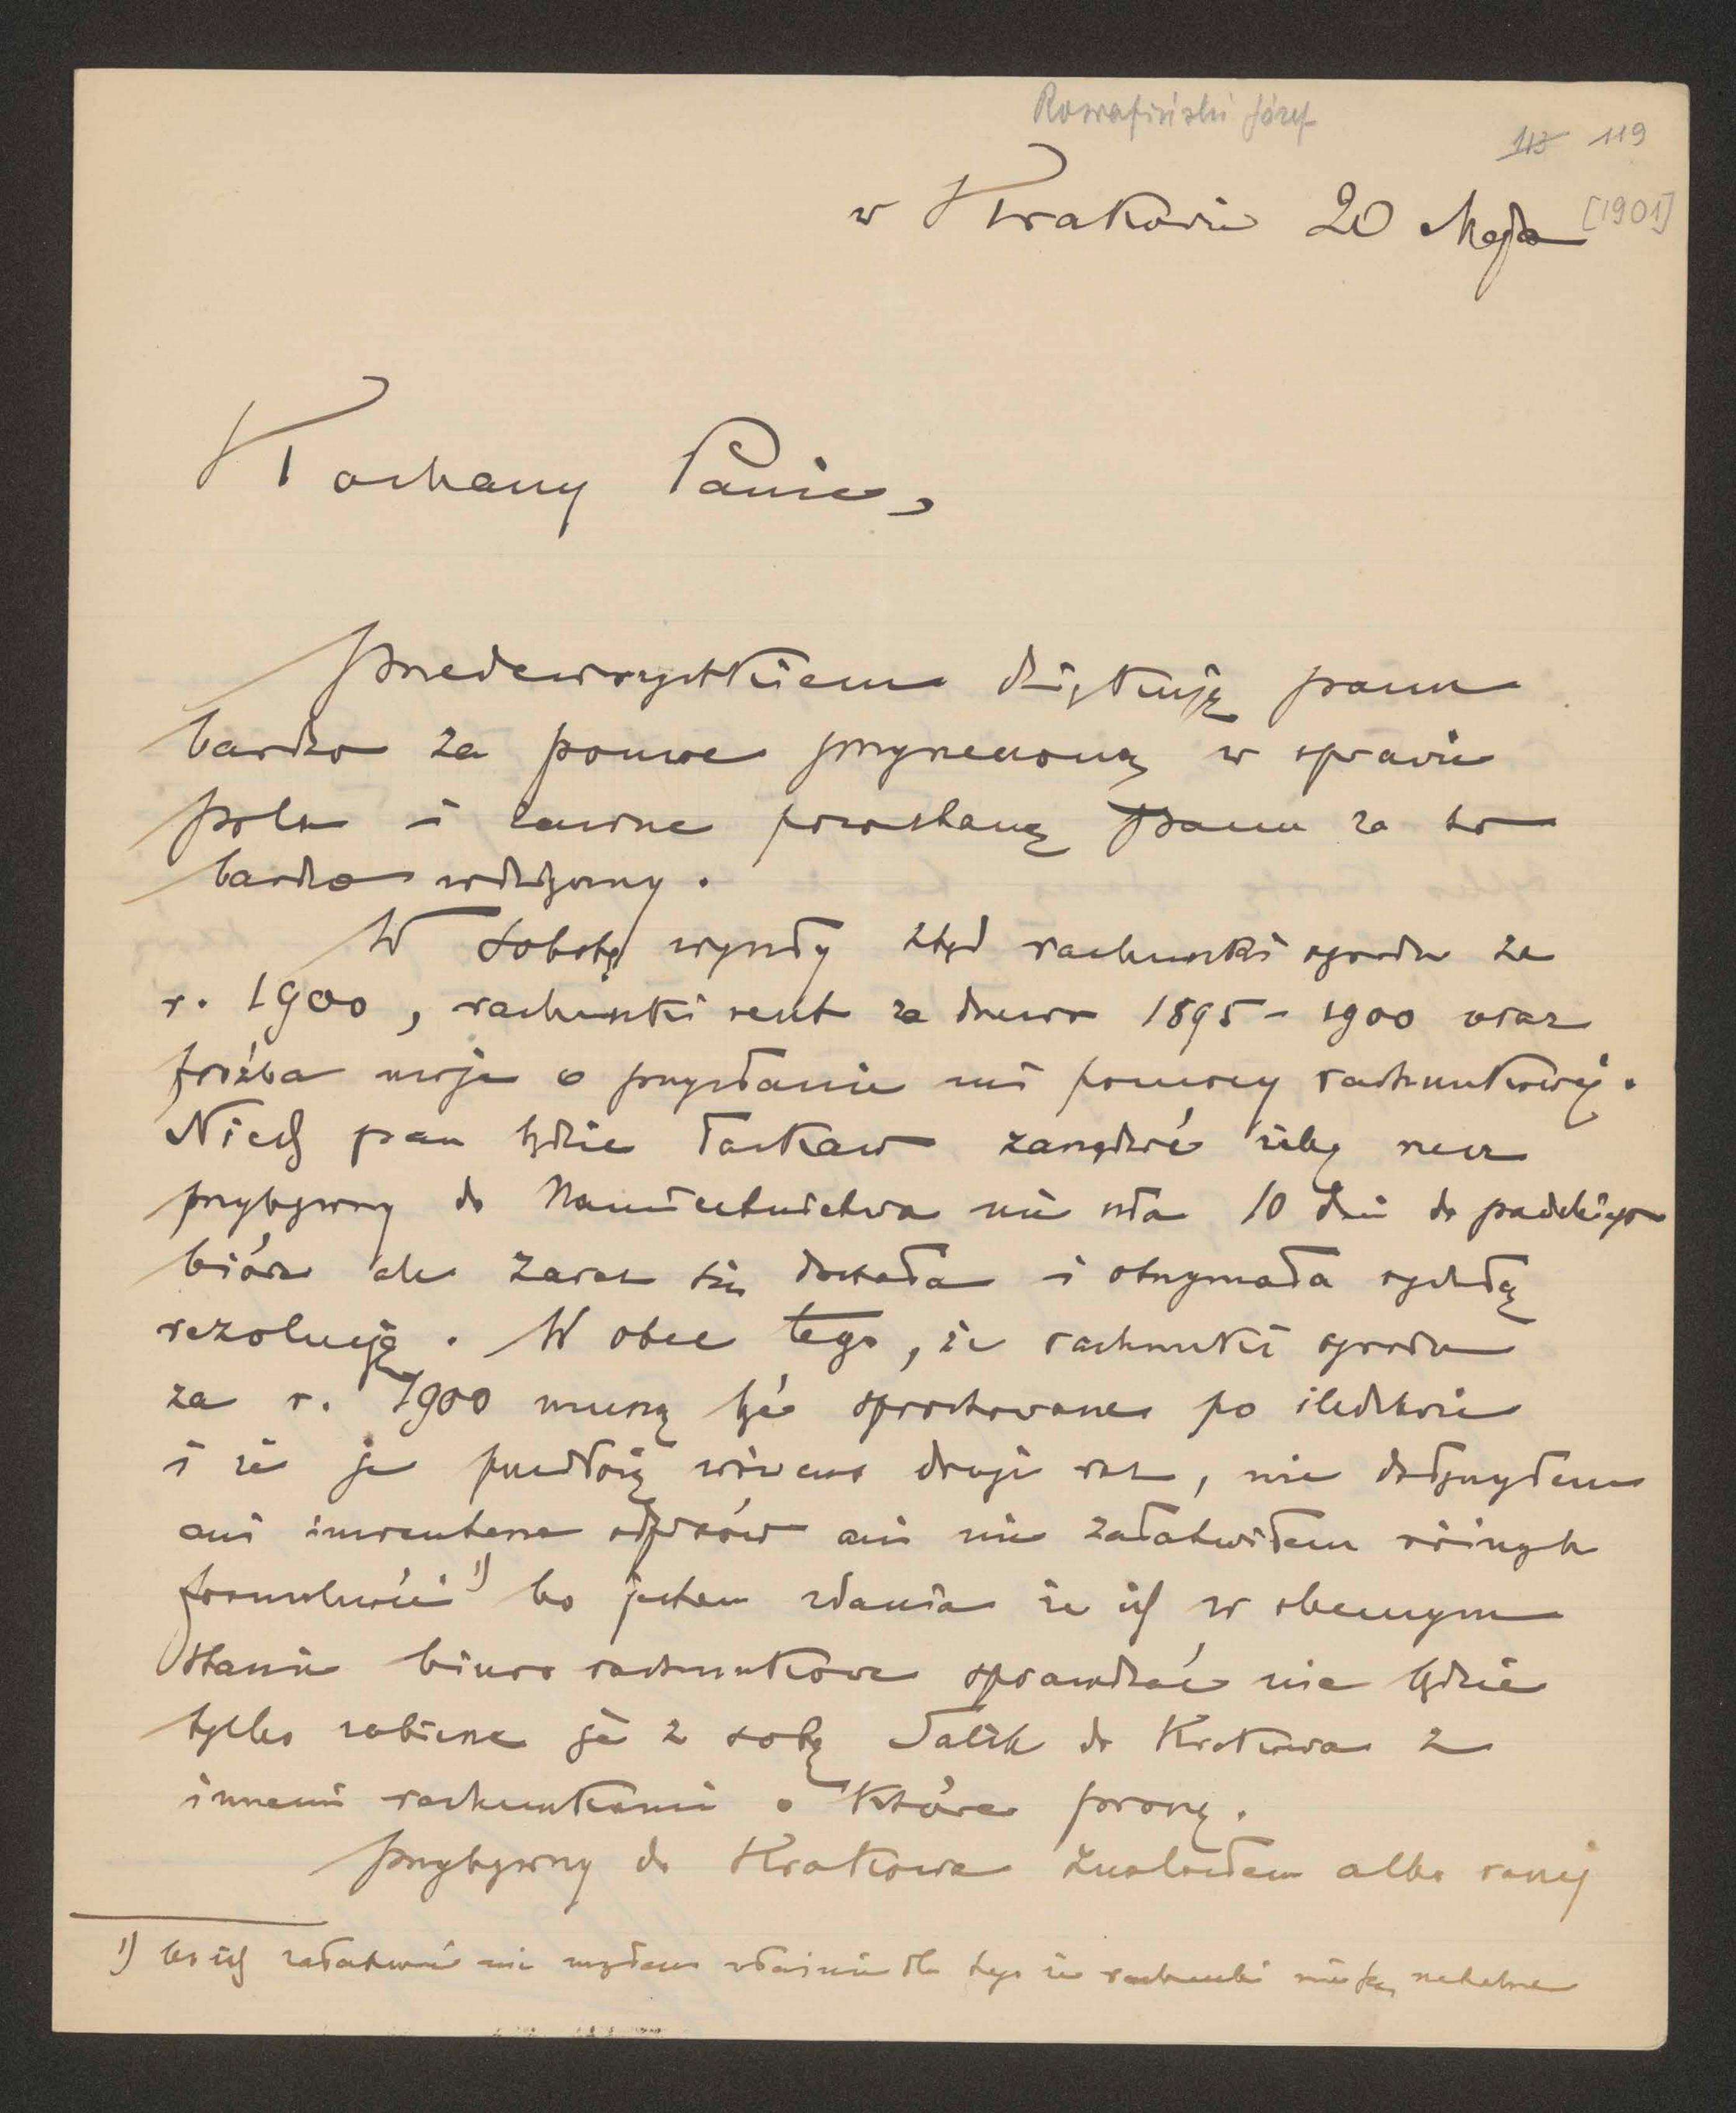 Rostafiński Józef
113 119
w Krakowie 20 Maja [1901]
Kochany Panie,
przedewszystkiem dziękuję panu
bardzo za pomoc przyrzeczoną w sprawie
pola i zawsze pozostanę Panu za to
bardzo wdzięczny.
W sobotę wyszły ztąd rachunki ogrodu za
r. 1900, rachunki za drzewo 1895-1900 oraz
prośba moja o przysłanie mi pomocy rachunkowej.
Niech pan będzie łaskaw zarządzić żeby rzecz
przybywszy do Namiestnictwa nie szła 10 dni do pańskiego
bióra ale zaraz się dostała i otrzymała rychłą
rezolucję. W obec tego, że rachunki ogrodu
za r. 1900 muszą być sprostowane po śledztwie
i że je przedłożę wówczas drugi raz, nie dołączyłem
ani inwentarza odpisów ani nie załatwiłem różnych
formalności 1) bo jestem zdania że ich w obecnym
stanie biuro rachunkowe sprawdzać nie będzie
tylko zabierze je z sobą do Krakowa z
innemi rachunkami o które proszę.
przybywszy do Krakowa znalazłem albo raczej
1) bo ich załatwić nie mogłem właśnie dla tego że rachunki nie są